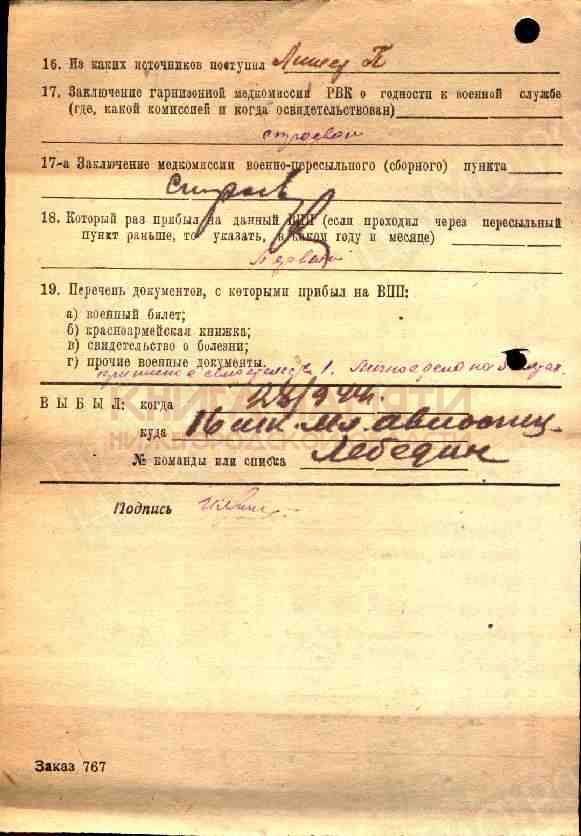 16. Из каких источников поступил
17. Заключение гарнизонной медкомиссии РВК о годности к военной службе
(где, какой комиссией и когда освидетельствован)
строевой
17-а Заключение медкомиссии военно-пересыльного (сборного) пункта
18. Который раз прибыл на данный ВПП (если проходил через пересыльный
пункт раньше, то указать, в каком году и месяце)
19. Перечень документов, с которыми прибыл на ВПП:
а) военный билет;
б) красноармейская книжка;
в) свидетельство о болезни;
г) прочие военные документы.
1. Личное дело на листах.
КНИГА ПАМЯТИ
ВЫБЫЛ: когда 28/9 44г.
НИЖЕГОРОДСКОЙ ОБЛАСТИ
куда 16 шк. мл. авиаспец.
№ команды или списка Лебедин
Подпись
Заказ 767